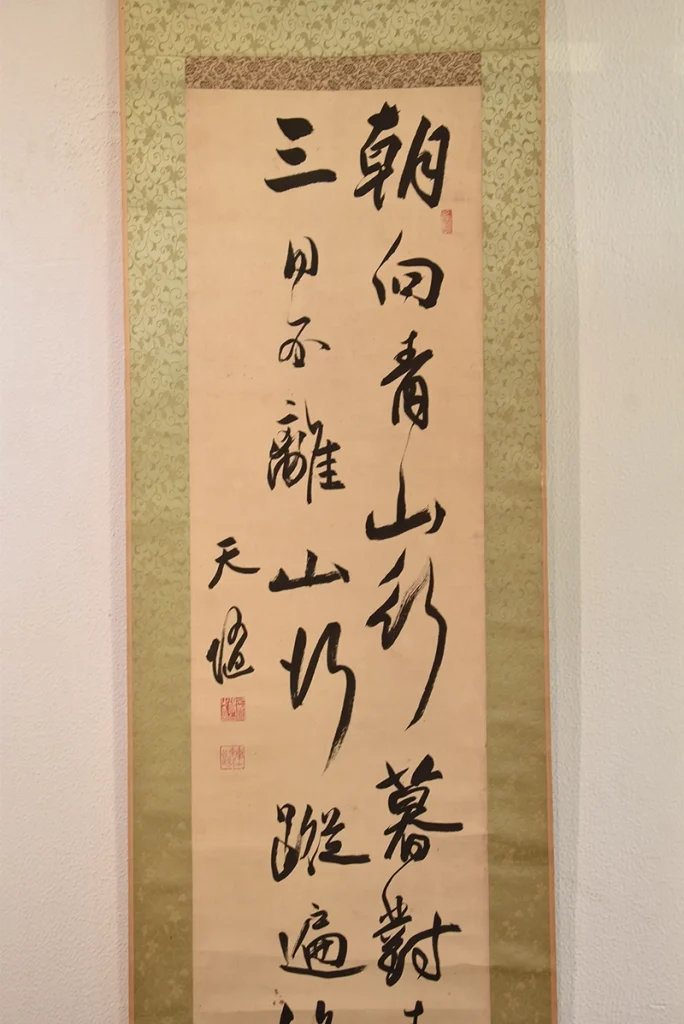 朝向青山行暮對
三日不離山行蹤遍
天